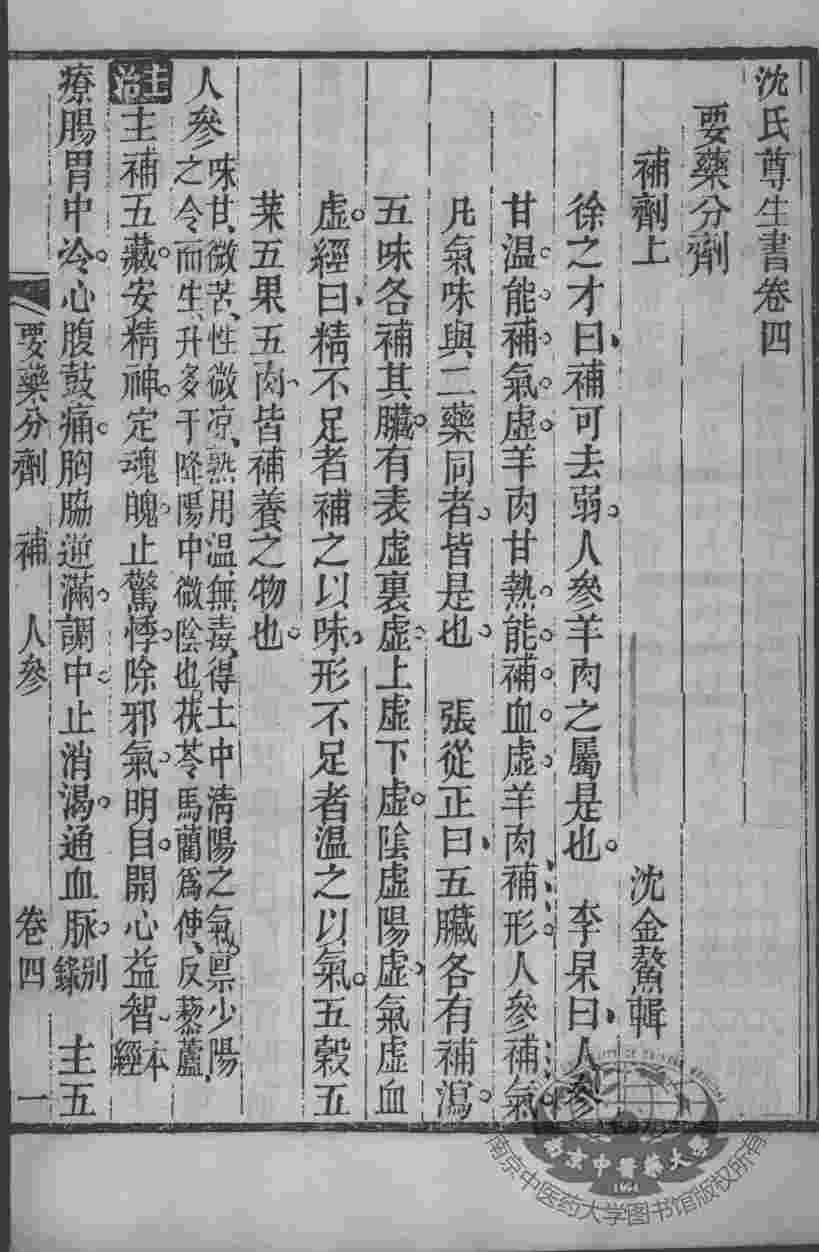 沈氏尊生書卷四
要藥分劑
補劑上
沈金鰲輯
徐之才曰補可去弱。人參羊肉之屬是也。 李杲曰人參
甘溫。能補氣虛。羊肉甘熱。能補血虛。羊肉補形。人參補氣。
凡氣味與二藥同者。皆是也。 張從正曰五臟各有補瀉。
五味各補其臟。有表虛裏虛。上虛下虛。陰虛陽虛。氣虛血
虛。經曰精不足者補之以味。形不足者溫之以氣。五穀五
菜五果五肉皆補養之物也。
人參
味甘、微苦、性微凉、熟用溫、無毒、得土中清陽之氣。禀少陽
之令而生、升多于降。陽中微陰也。茯苓馬藺爲使、反藜蘆、
主治主補五藏。安精神。定魂魄。止驚悸。除邪氣。明目。開心益智。本經
療腸胃中冷。心腹鼓痛。胸脇逆滿。調中止消渴。通血脉。別錄 主五
要藥分劑 補 人參 卷四 一
南京中醫藥大學
1954
南京中医药大学图书馆版权所有